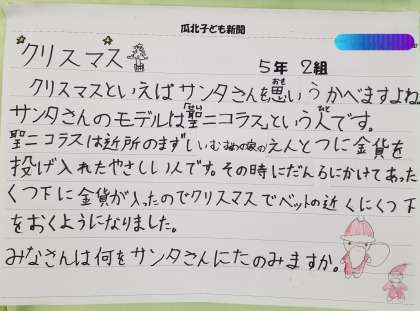 瓜北子ども新聞
クリスマス
5年 2組
クリスマスといえばサンタさんを思いうかべますよね
サンタさんのモデルは「聖ニコラス」という人です。
聖ニコラスは近所のまずしいむすめの家のえんとつに金貨を
投げ入れたやさしい人です。その時にだんろにかけてあった
くつ下に金貨が入ったのでクリスマスでベットの近くにくつ下
をおくようになりました。
みなさんは何をサンタさんにたのみますか。